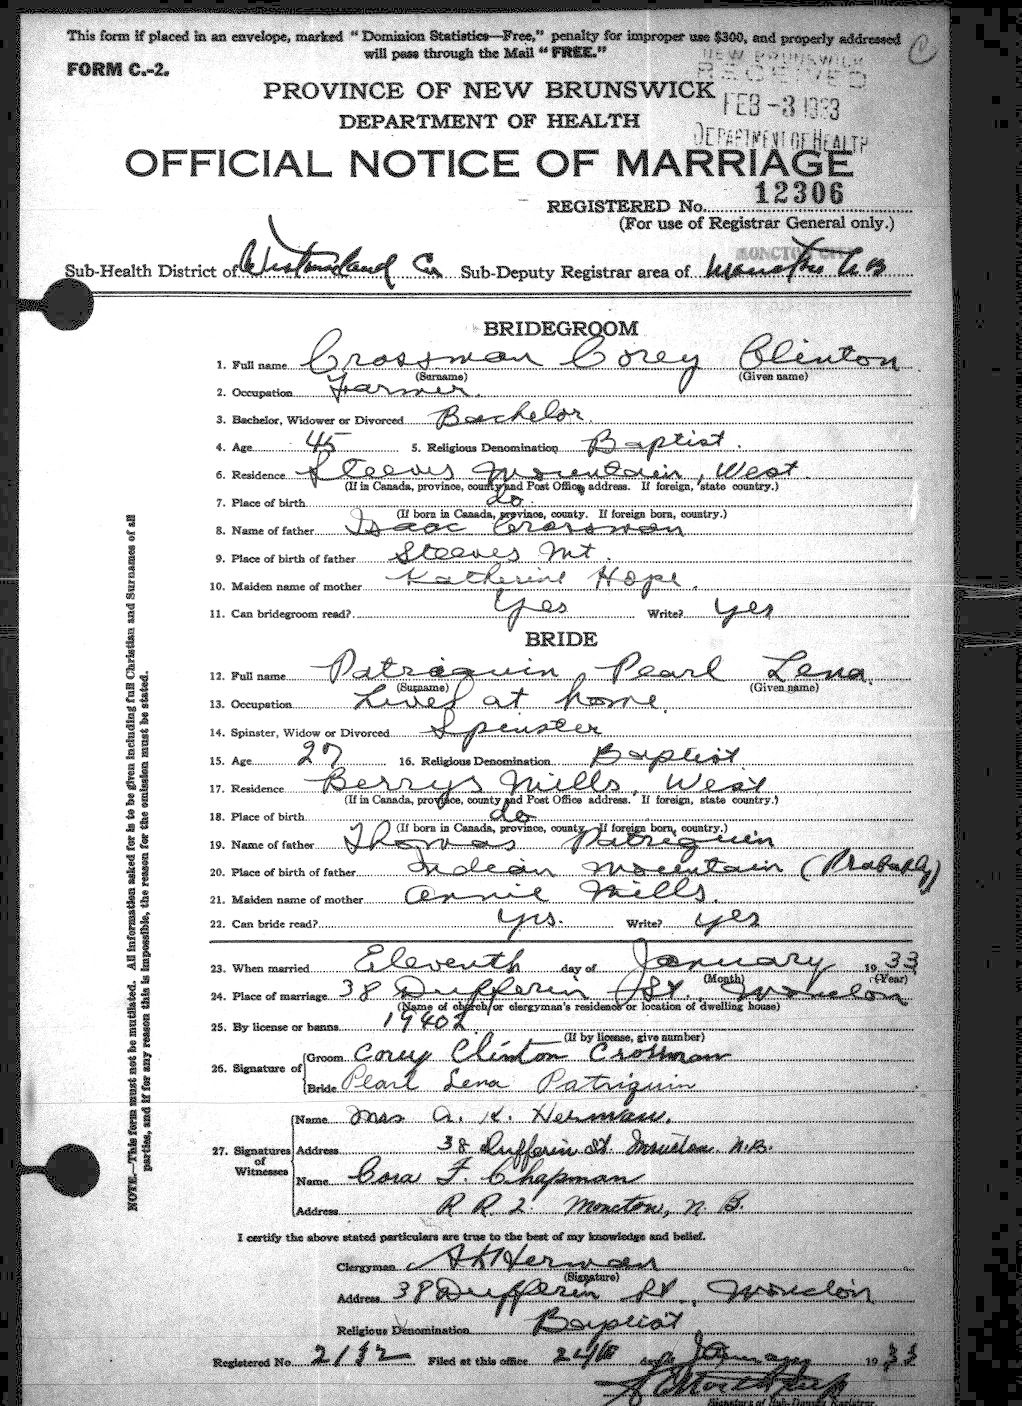 This form if placed in an envelope, marked "Dominion Statistics—Free," penalty for improper use $300, and properly addressed
will pass through the Mail "FREE."
FORM C.-2.
NEW BRUNSWICK
RECEIVED
FEB -3 1933
DEPARTMENT OF HEALTH
PROVINCE OF NEW BRUNSWICK
DEPARTMENT OF HEALTH
OFFICIAL NOTICE OF MARRIAGE
REGISTERED No. 12306
(For use of Registrar General only.)
MONCTON CITY
Sub-Health District of Westmorland Co Sub-Deputy Registrar area of Moncton
BRIDEGROOM
1. Full name Crossman Corey Clinton
(Surname) (Given name)
2. Occupation Farmer.
3. Bachelor, Widower or Divorced Bachelor.
4. Age 45 5. Religious Denomination Baptist.
6. Residence Steeves Mountain, West.
(If in Canada, province, county and Post Office address. If foreign, state country.)
7. Place of birth do
(If born in Canada, province, county. If foreign born, country.)
8. Name of father Isaac Crossman
9. Place of birth of father Steeves Mt.
10. Maiden name of mother Katherine Hope.
11. Can bridegroom read? Yes Write? yes
BRIDE
12. Full name Patriquin Pearl Lena.
(Surname) (Given name)
13. Occupation Lives at home.
14. Spinster, Widow or Divorced Spinster
15. Age 27 16. Religious Denomination Baptist.
17. Residence Berrys Mills, West
(If in Canada, province, county and Post Office address. If foreign, state country.)
18. Place of birth do
(If born in Canada, province, county. If foreign born, country.)
19. Name of father Thomas Patriquin
20. Place of birth of father Indian Mountain (Probably)
21. Maiden name of mother Annie Mills.
22. Can bride read? yes. Write? yes
23. When married Eleventh day of January 1933
(Month) (Year)
24. Place of marriage 38 Dufferin St., Moncton
(Name of church or clergyman's residence or location of dwelling house)
25. By license or banns 19402
(If by license, give number)
26. Signature of Groom Corey Clinton Crossman
Bride Pearl Lena Patriquin
27. Signatures of Witnesses
Name Mrs A. K. Herman.
Address 38 Dufferin St. Moncton. N.B.
Name Cora F. Chapman
Address R R 2. Moncton, N. B.
I certify the above stated particulars are true to the best of my knowledge and belief.
Clergyman A K Herman
(Signature)
Address 38 Dufferin St., Moncton
Religious Denomination Baptist
Registered No. 2132 Filed at this office 24th day of January 1933
Signature of Sub-Deputy Registrar.
NOTE.—This form must not be mutilated. All information asked for is to be given including full Christian and Surnames of all
parties, and if for any reason this is impossible, the reason for the omission must be stated.